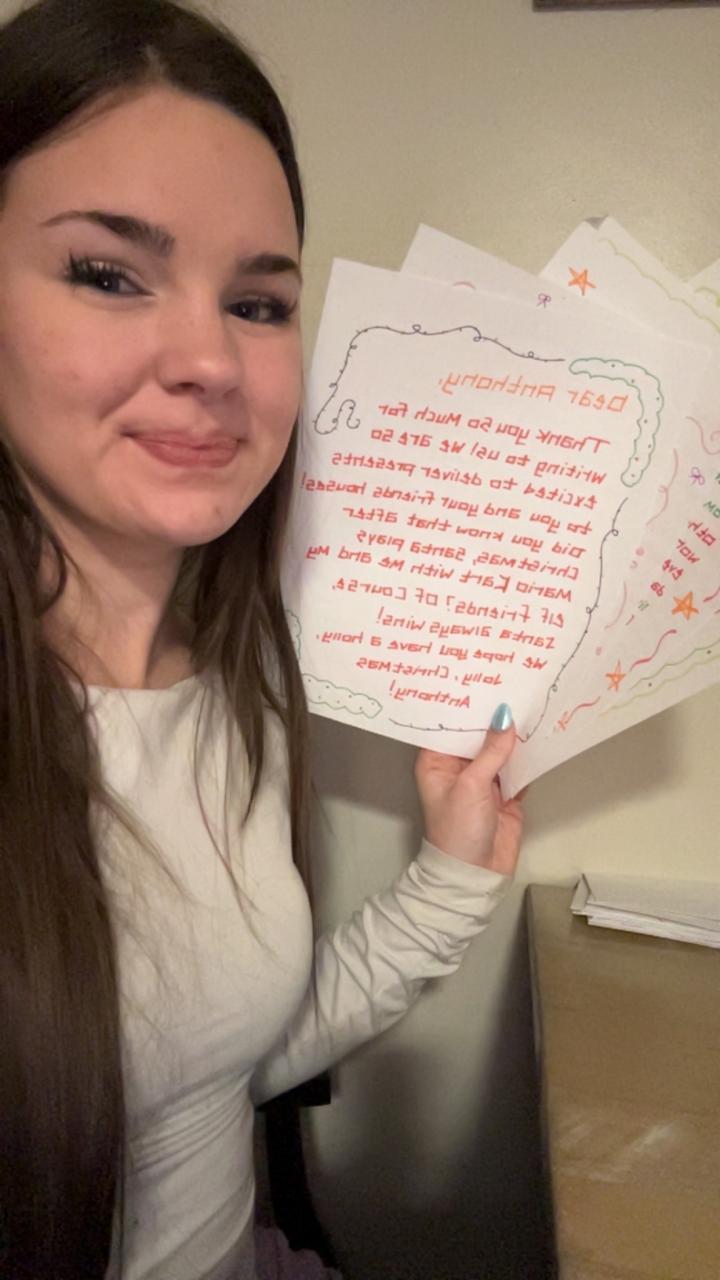 Dear Anthony,
Thank you so Much for
writing to us! We are so
excited to deliver presents
to you and your friends houses!
Did you know that after
Christmas, Santa plays
Mario Kart with Me and My
Elf friends? Of Course,
Santa always wins!
We hope you have a holly,
Jolly, Christmas
Anthony!